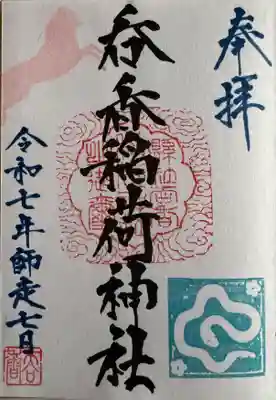 奉拝
呑香稲荷神社
令和七年師走七日